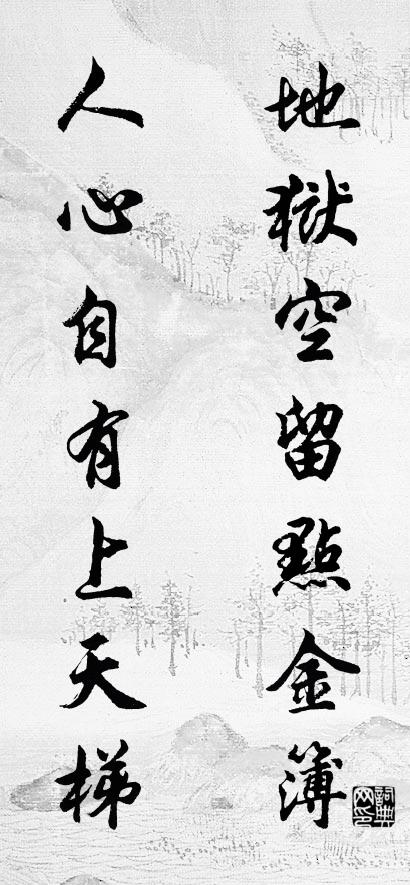 地獄空留點金簿
人心自有上天梯
詞典网印